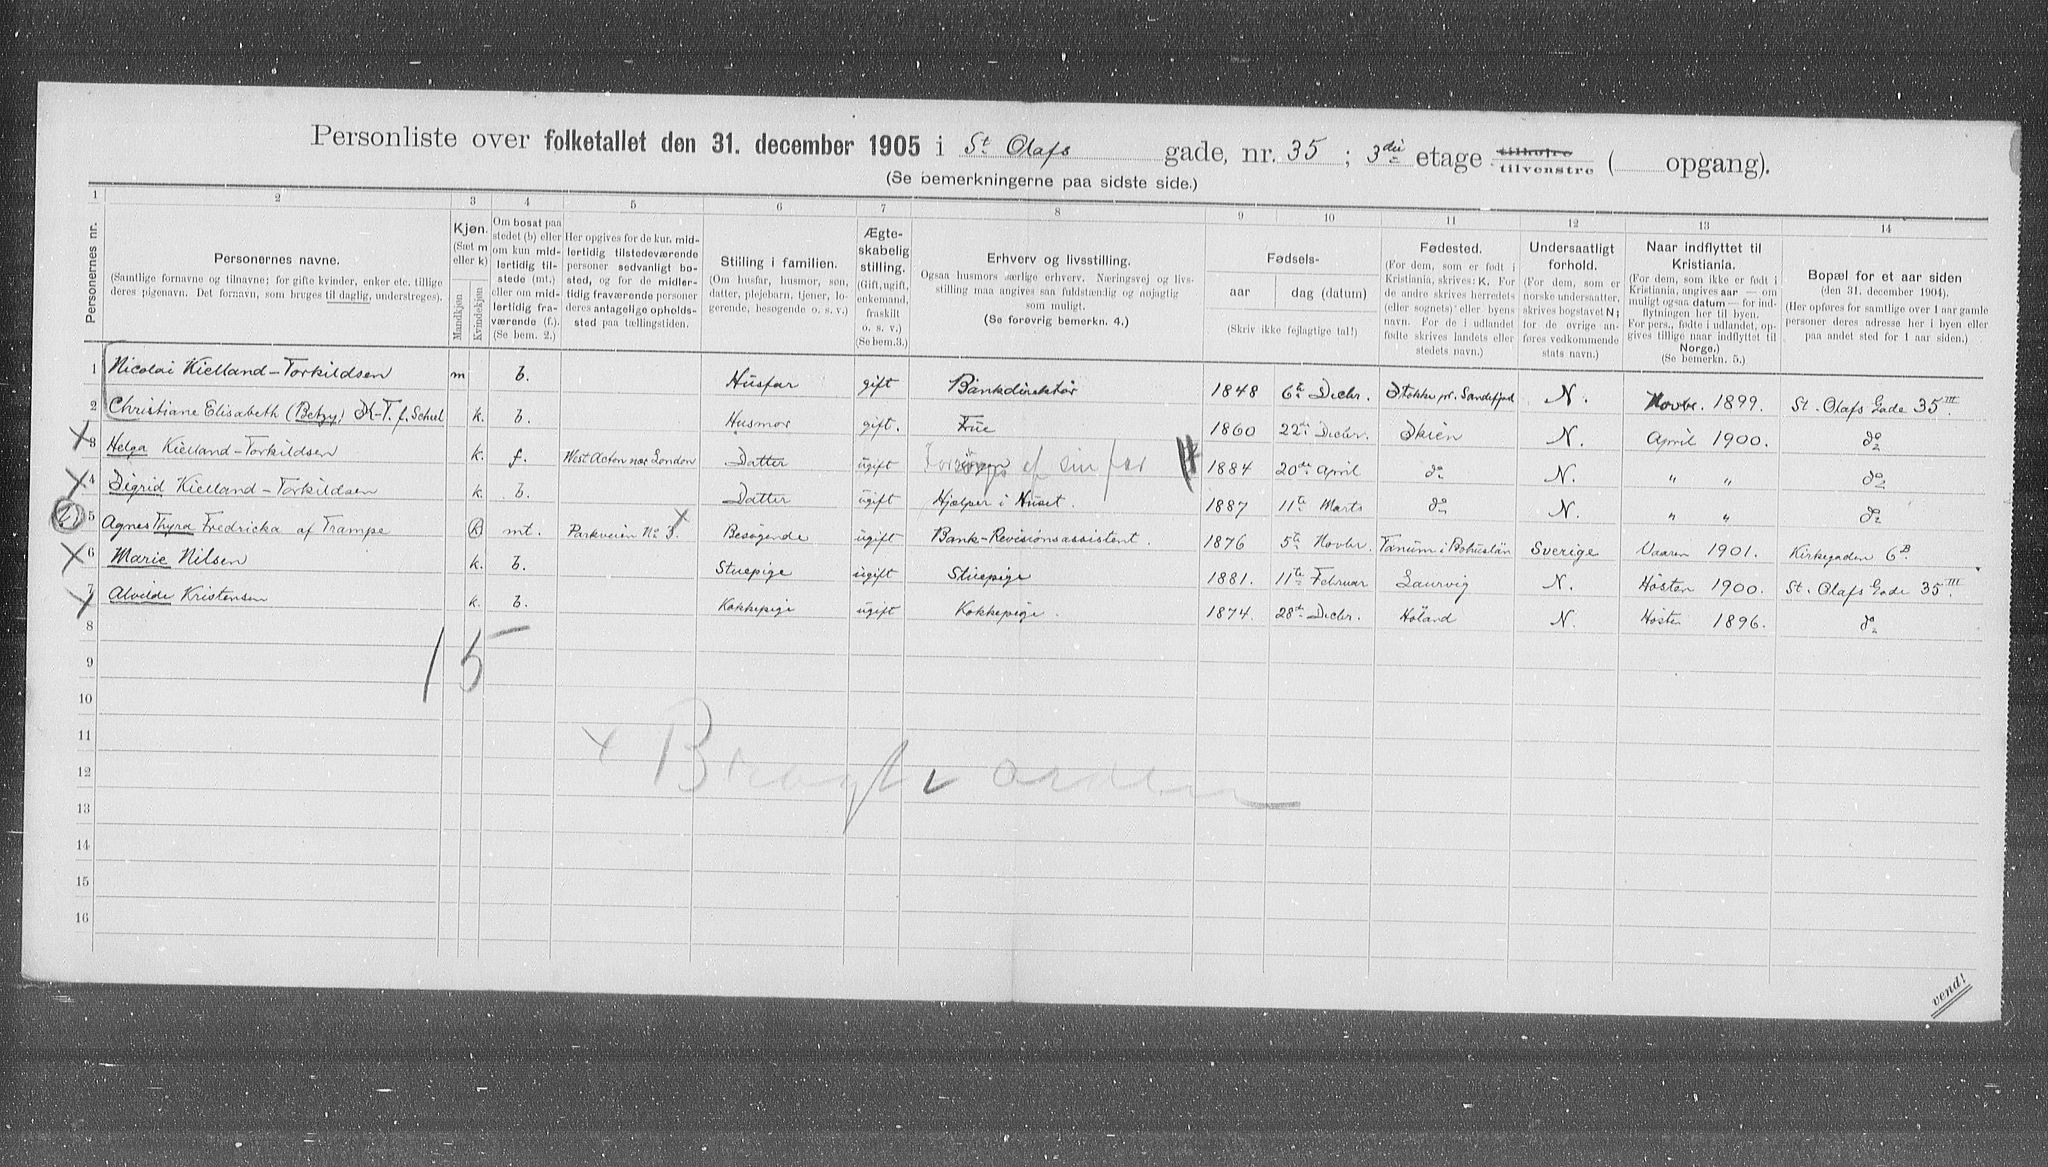 Personliste over folketallet den 31. december 1905 i St Olafs gade, nr. 35 ; 3die etage tilhøjre tilvenstre ( opgang).
(Se bemerkningerne paa sidste side.)
1 2 3 4 5 6 7 8 9 10 11 12 13 14
Personernes nr.
Personernes navne.
(Samtlige fornavne og tilnavne; for gifte kvinder, enker etc. tillige
deres pigenavn. Det fornavn, som bruges til daglig, understreges).
Kjøn.
(Sæt m
eller k)
Mandkjøn
Kvindekjøn
Om bosat paa
stedet (b) eller
om kun mid-
lertidig til-
stede (mt.)
eller om mid-
lertidig fra-
værende (f.).
(Se bem. 2.)
Her opgives for de kur. mid-
lertidig tilstedeværende
personer sedvanligt bo-
sted, og for de midler-
tidig fraværende personer
deres antagelige opholds-
sted paa tællingstiden.
Stilling i familien.
(Om husfar, husmor, søn,
datter, plejebarn, tjener, lo-
gerende, besøgende o. s. v.)
Ægte-
skabelig
stilling.
(Gift, ugift,
enkemand,
fraskilt
o. s. v.)
(Se bem.3.)
Erhverv og livsstilling.
Ogsaa husmors særlige erhverv. Næringsvej og livs-
stilling maa angives saa fuldstændig og nøjagtig
som muligt.
(Se forøvrig bemerkn. 4.)
Fødsels-
aar dag (datum)
(Skriv ikke fejlagtige tal!)
Fødested.
(For dem, som er født i
Kristiania, skrives: K. For
de andre skrives herredets
(eller sognets) eller byens
navn. For de i udlandet
fødte skrives landets eller
stedets navn.)
Undersaatligt
forhold.
(For dem, som er
norske undersaatter,
skrives bogstavet N;
for de øvrige an-
føres vedkommende
stats navn.)
Naar indflyttet til
Kristiania.
(For dem, som ikke er født i
Kristiania, angives aar — om
muligt ogsaa datum — for ind-
flytningen her til byen.
For pers., fødte i udlandet, op-
gives tillige naar indflyttet til
Norge.)
(Se bemerkn. 5.)
Bopæl for et aar siden
(den 31. december 1904).
(Her opføres for samtlige over 1 aar gamle
personer deres adresse her i byen eller
paa andet sted for 1 aar siden.)
1 Nicolai Kielland-Torkildsen m b. Husfar gift Bankdirektør 1848 6te Decbr. Stokke pr. Sandefjord N. Novbr. 1899. St. Olafs Gade 35III
2 Christiane Elisabeth (Betzy) K-T. f. Scheel k. b. Husmor gift. Frue 1860 22de Decbr. Skien N. April 1900. do
3 Helga Kielland-Torkildsen k. f. West Acton nær London Datter ugift Forsørges af sin far 1884 20de April do N. " " do
4 Sigrid Kielland-Torkildsen k. b. Datter ugift Hjælper i Huset. 1887 11te Marts do N. " " do
5 Agnes Thyra Fredricka af Trampe k mt. Parkveien No 3. Besøgende ugift Bank-Revisionsassistent. 1876 5te Novbr. Tanum i Bohuslän Sverige Vaaren 1901. Kirkegaden 6B.
6 Marie Nilsen k. b. Stuepige ugift Stuepige 1881. 11te Februar Laurvig N. Høsten 1900. St. Olafs Gade 35III.
7 Alvilde Kristensen k. b. Kokkepige ugift Kokkepige. 1874. 28de Decbr. Høland N. Høsten 1896. do
8
9
10
11
12
13
14
15
16
15
vend!